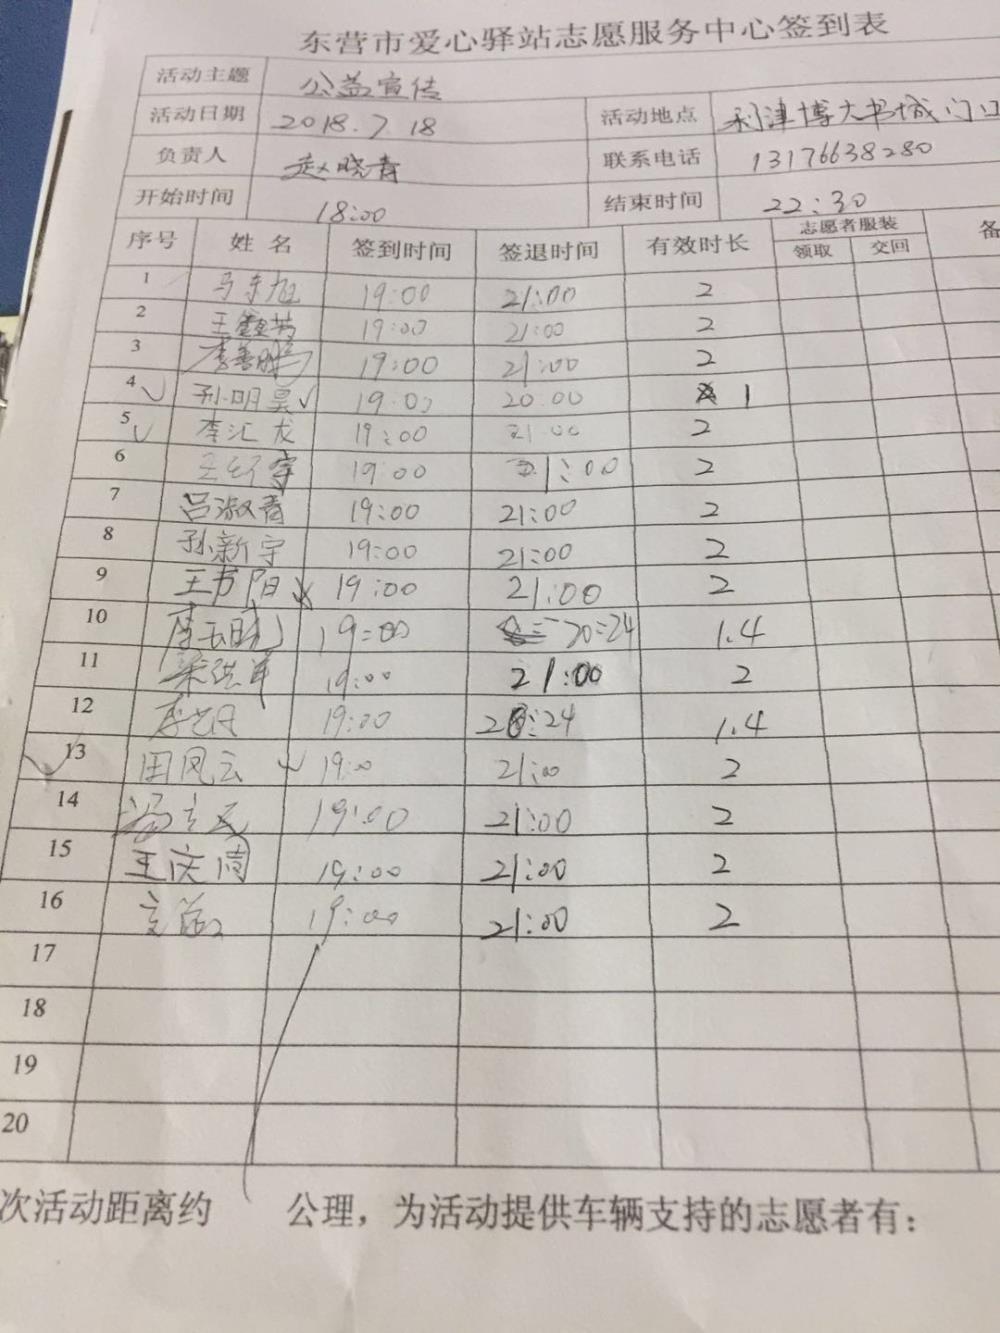 东营市爱心驿站志愿服务中心签到表
活动主题 公益宣传
活动日期 2018.7.18 活动地点 利津博大书城门口
负责人 赵晓青 联系电话 13176638280
开始时间 18:00 结束时间 22:30
序号 姓名 签到时间 签退时间 有效时长 志愿者服装 备
领取 交回
1 马东旭 19:00 21:00 2
2 王 芳 19:00 21:00 2
3 李善鹏 19:00 21:00 2
4 孙明昊 19:00 20:00 1
5 李汇龙 19:00 21:00 2
6 19:00 21:00 2
7 吕淑青 19:00 21:00 2
8 孙新宇 19:00 21:00 2
9 王书阳 19:00 21:00 2
10 李玉晓 19:00 20:24 1.4
11 梁洪军 19:00 21:00 2
12 19:00 20:24 1.4
13 田风云 19:00 21:00 2
14 冯立民 19:00 21:00 2
15 王庆 19:00 21:00 2
16 19:00 21:00 2
17
18
19
20
次活动距离约 公理，为活动提供车辆支持的志愿者有：